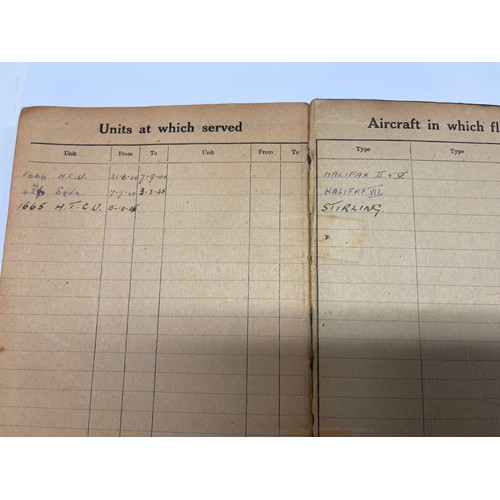 Units at which served
Unit From To Unit From To
1666 H.C.U. 21-6-44 7-9-44
426 Sqdn. 7-9-44 3-3-45
1665 H.T.C.U. 5-10-45
Aircraft in which fl
Type Type
HALIFAX II & V
HALIFAX VII
STIRLING